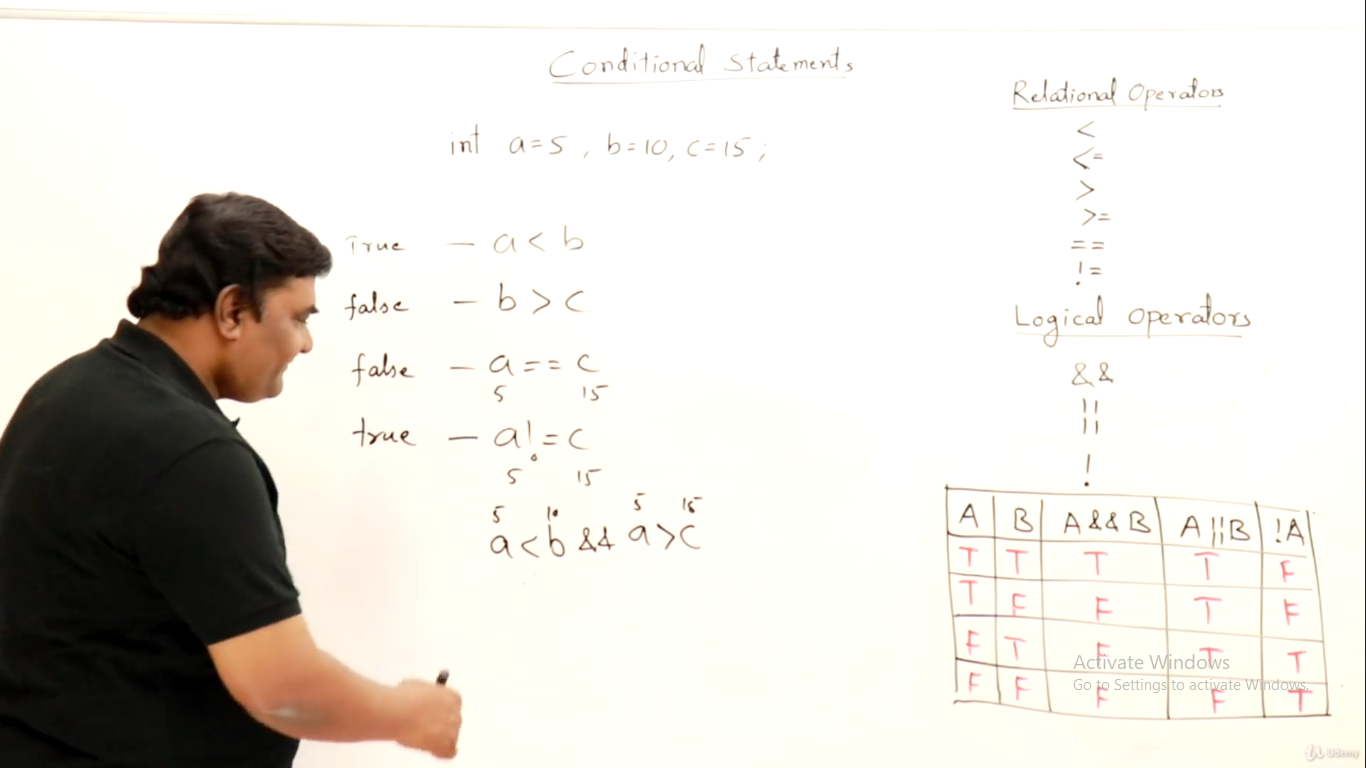 Conditional Statements
int a=5, b=10, c=15;
True — a < b
false — b > c
false — a == c
5 15
true — a != c
5 15
5 10 5 15
a < b && a > c
Relational Operators
<
<=
>
>=
==
!=
Logical Operators
&&
||
!
A B A && B A || B !A
T T T T F
T F F T F
F T F T T
F F F F T
Activate Windows
Go to Settings to activate Windows.
Udemy